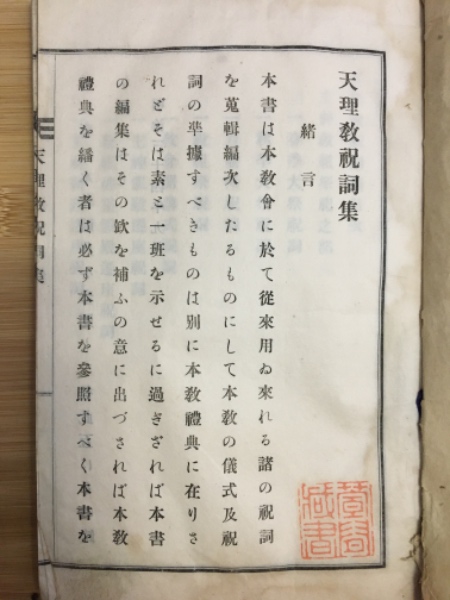 天理敎祝詞集
緒言
本書は本敎會に於て從來用ゐ來れる諸の祝詞
を蒐輯編次したるものにして本敎の儀式及祝
詞の準據すべきものは別に本敎禮典に在りさ
れどそは素と一班を示せるに過ぎざれば本書
の編集はその欹を補ふの意に出づされば本敎
禮典を繙く者は必ず本書を參照すべく本書を
天理敎祝詞集
藏書